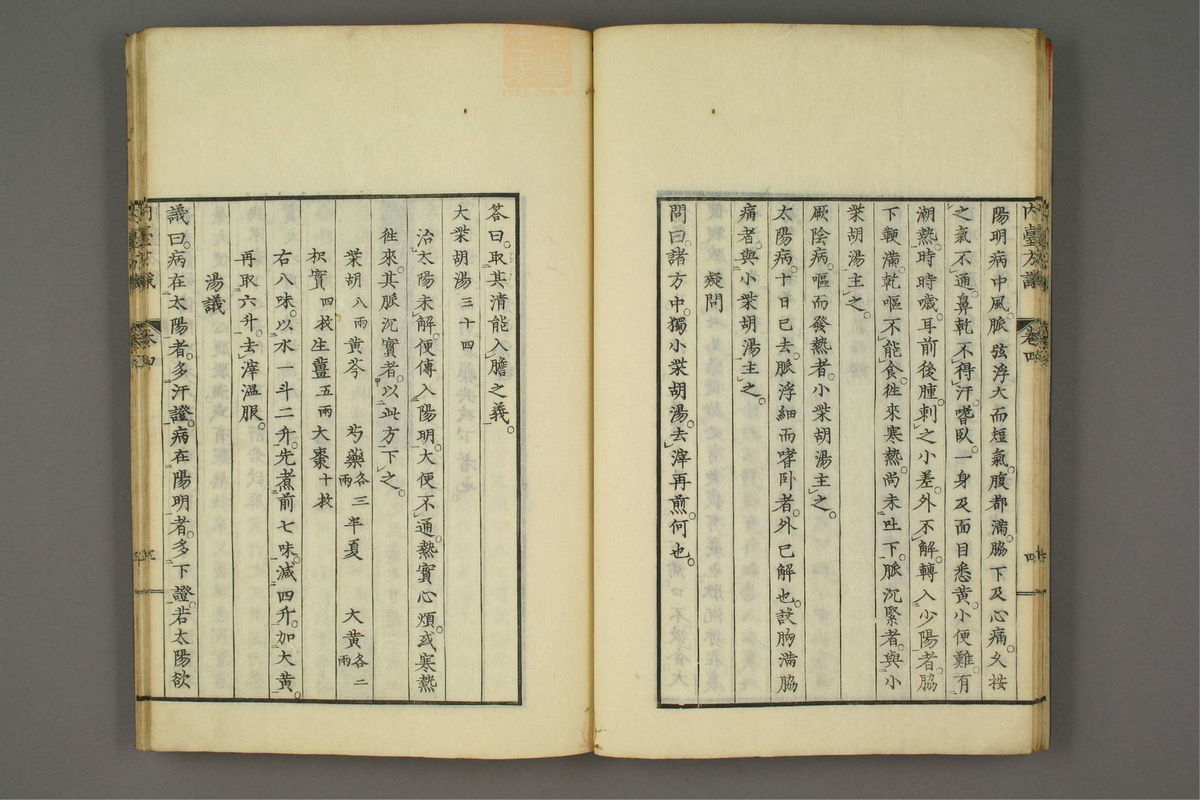 内臺方議 卷四
陽明病中風。脈弦浮大而短氣。腹都滿。脇下及心痛。久按
之氣不通。鼻乾不得汗。嗜臥。一身及面目悉黃。小便難。有
潮熱。時時噦。耳前後腫。刺之小差。外不解。轉入少陽者。脇
下鞕滿。乾嘔不能食。往來寒熱。尚未吐下。脈沉緊者。與小
柴胡湯主之。
厥陰病。嘔而發熱者。小柴胡湯主之。
太陽病。十日已去。脈浮細而嗜卧者。外已解也。設胸滿脇
痛者。與小柴胡湯主之。
疑問
問曰。諸方中。獨小柴胡湯。去滓再煎。何也。
答曰。取其清能入膽之義。
大柴胡湯三十四
治太陽未解。便傳入陽明。大便不通。熱實心煩。或寒熱
往來。其脈沉實者。以此方下之。
柴胡八兩 黃芩 芍藥各三兩 半夏 大黃各二兩
枳實四枚 生薑五兩 大棗十枚
右八味。以水一斗二升。先煮前七味。減四升。加大黃。
再取六升。去滓溫服。
湯議
議曰。病在太陽者。多汗證。病在陽明者。多下證。若太陽欲